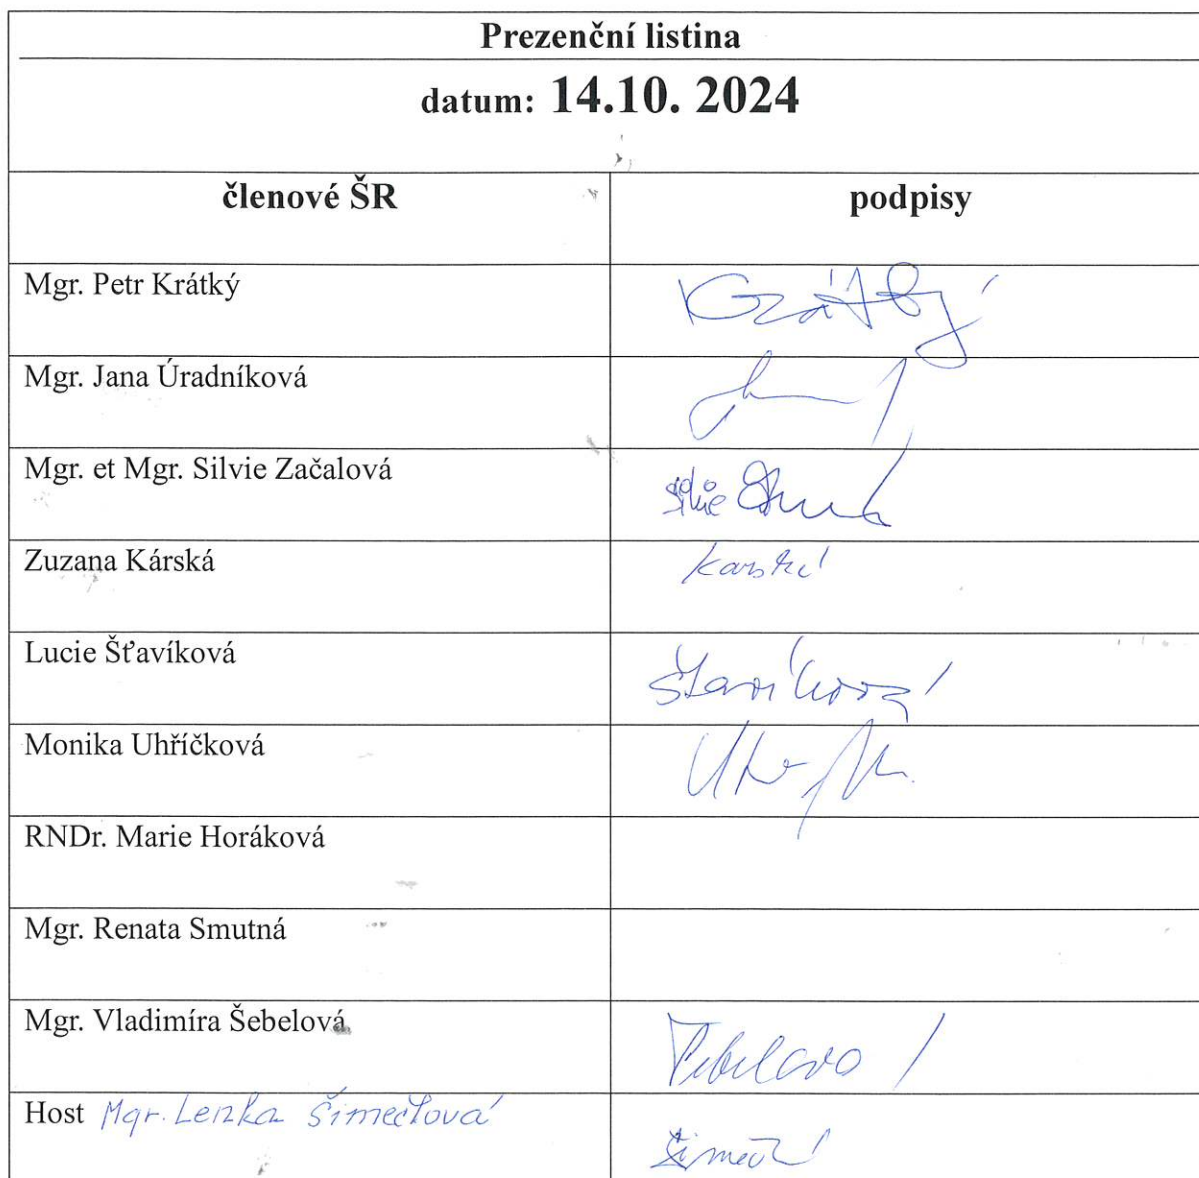 Prezenční listina
datum: 14.10. 2024
členové ŠR podpisy
Mgr. Petr Krátký Krátký
Mgr. Jana Úradníková
Mgr. et Mgr. Silvie Začalová Silvie
Zuzana Kárská Karská
Lucie Šťavíková Šťavíková
Monika Uhříčková
RNDr. Marie Horáková
Mgr. Renata Smutná
Mgr. Vladimíra Šebelová
Host Mgr. Lenka Šimečková